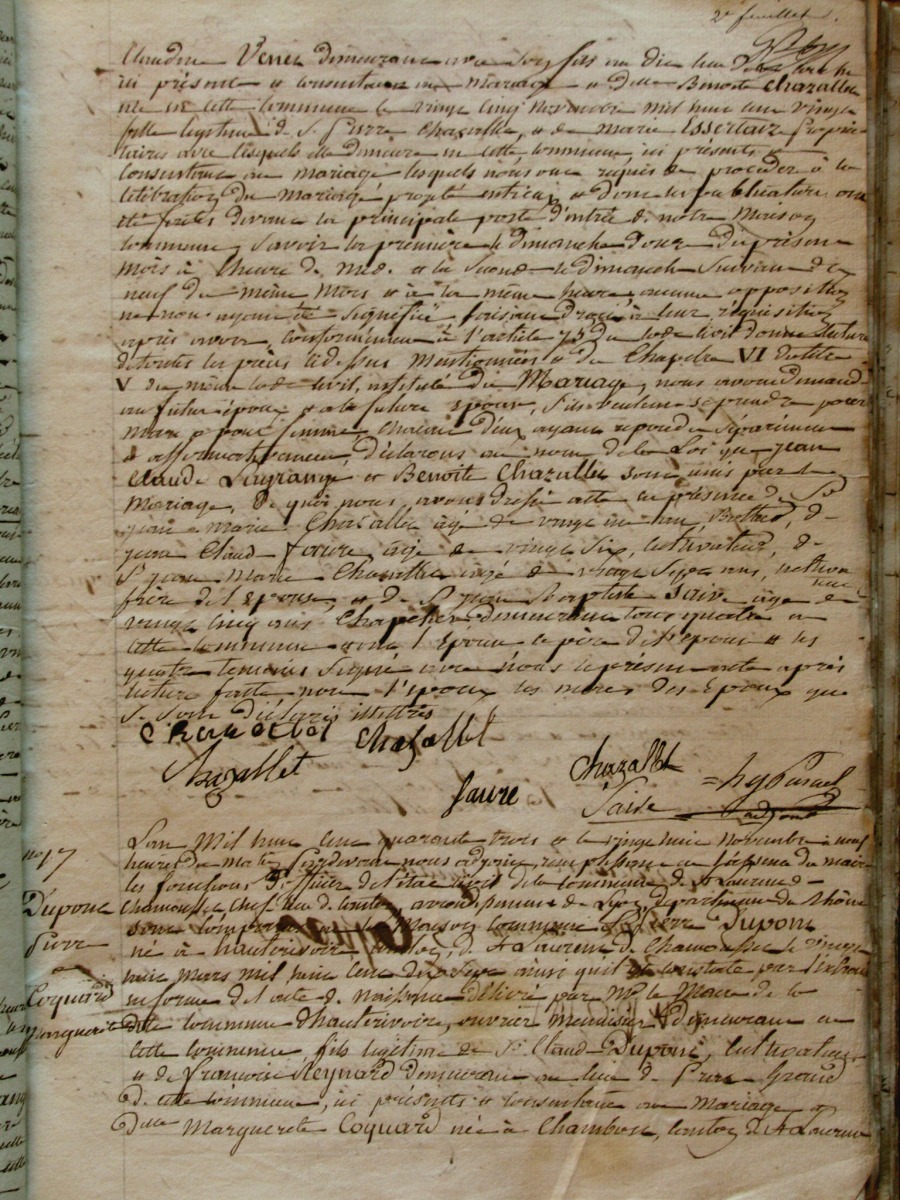 2e feuillet
Claudine Venet demeurant avec son fils au dit lieu
ici présente et consentant au mariage et dlle Benoite Chazallet
née en cette commune le vingt cinq novembre mil huit cent vingt
fille légitime de Sr Pierre Chazallet, et de Marie Essertair proprié-
taires avec lesquels elle demeure en cette commune, ici présents et
consentant au mariage lesquels nous ont requis de procéder à la
célébration du mariage projeté entreux et dont les publications ont
été faites devant la principale porte d'entrée de notre Maison
commune, savoir la première le dimanche douze du présent
mois à l'heure de midi et la seconde le dimanche suivant dix
neuf du même mois et à la même heure, aucune opposition
ne nous ayant été signifiée faisant droit à leur réquisition
après avoir, conformément à l'article 75 du code civil donné lecture
de toutes les pièces ci dessus mentionnées et du Chapitre VI du titre
V du même code civil, intitulé du Mariage, nous avons demandé
au futur époux et à la future épouse, s'ils veulent se prendre pour
mari et pour femme, chacun d'eux ayant répondu séparément
et affirmativement, déclarons au nom de la Loi que Jean
Claude Lagrange et Benoite Chazallet sont unis par le
Mariage, de quoi nous avons dressé acte en présence de Sr
Jean Marie Chazallet âgé de vingt un ans, de
Jean Claude Favre, âgé de vingt six, cultivateur, de
Sr Jean Marie Chazallet âgé de vingt sept ans,
frère de l'épouse, et de Sr Jean Baptiste Saive âgé de
vingt cinq ans Chapelier demeurant tous quatre en
cette commune l'épouse le père de l'épouse et les
quatre témoins signé avec nous le présent acte après
lecture faite non l'époux les mères des époux que
se sont déclarés illettrés
Chazallet
Chazallet
Chazallet
Favre
Saive
adjoint
No 17
Dupont
Pierre
et
Coquard
Marguerite
L'an Mil huit cent quarante trois et le vingt huit Novembre à neuf
heures du matin pardevant nous adjoint remplissant en l'absence du maire
les fonctions d'officier de l'état civil de la commune de St Laurent de
Chamousset, chef lieu de canton arrondissement de Lyon département du Rhône
sont comparus en la Maison commune Pierre Dupont
né à hauterivoire canton de St Laurent de Chamousset le vingt
huit mars mil huit cent dix sept ainsi qu'il est constaté par l'extrait
en forme de l'acte de naissance délivré par Mr le Maire de la
dite commune d'hauterivoire, ouvrier menuisier demeurant en
cette commune, fils légitime de Sr Claude Dupont, cultivateur
et de françoise Reynard demeurant au lieu de
de cette commune, ici présents et consentant au mariage et
dlle Marguerite Coquard née à Chambost, canton de St Laurent